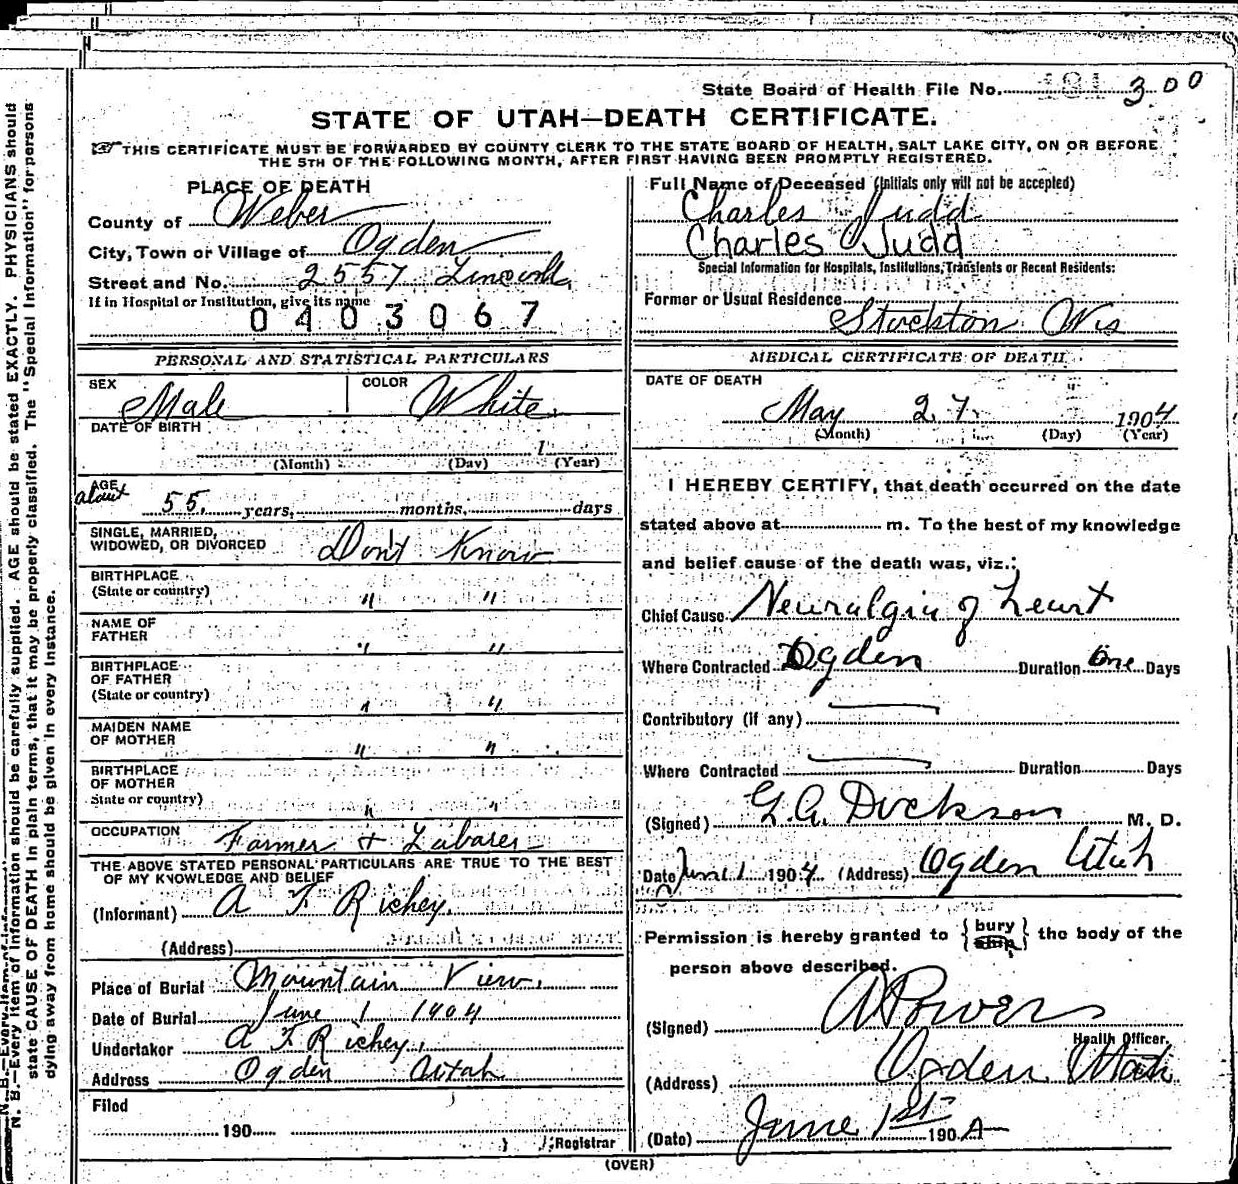 State Board of Health File No. 300
STATE OF UTAH—DEATH CERTIFICATE.
THIS CERTIFICATE MUST BE FORWARDED BY COUNTY CLERK TO THE STATE BOARD OF HEALTH, SALT LAKE CITY, ON OR BEFORE
THE 5TH OF THE FOLLOWING MONTH, AFTER FIRST HAVING BEEN PROMPTLY REGISTERED.
PLACE OF DEATH
County of Weber
City, Town or Village of Ogden
Street and No. 2557 Lincoln
If in Hospital or Institution, give its name
0403067
Full Name of Deceased (Initials only will not be accepted)
Charles Judd
Charles Judd
Special Information for Hospitals, Institutions, Transients or Recent Residents:
Former or Usual Residence
Stockton Wis
PERSONAL AND STATISTICAL PARTICULARS
SEX Male COLOR White
DATE OF BIRTH
1
(Month) (Day) (Year)
AGE
about 55 years, months, days
SINGLE, MARRIED,
WIDOWED, OR DIVORCED Don't Know
BIRTHPLACE
(State or country) " "
NAME OF
FATHER " "
BIRTHPLACE
OF FATHER
(State or country) " "
MAIDEN NAME
OF MOTHER " "
BIRTHPLACE
OF MOTHER
State or country) " "
OCCUPATION Farmer + Labarer
THE ABOVE STATED PERSONAL PARTICULARS ARE TRUE TO THE BEST
OF MY KNOWLEDGE AND BELIEF
(Informant) A F Richey.
(Address)
Place of Burial Mountain View.
Date of Burial June 1 1904
Undertaker A F Richey.
Address Ogden Utah
Filed
190
Registrar
MEDICAL CERTIFICATE OF DEATH
DATE OF DEATH
May 27. 1904
(Month) (Day) (Year)
I HEREBY CERTIFY, that death occurred on the date
stated above at m. To the best of my knowledge
and belief cause of the death was, viz.:
Chief Cause Neuralgia of heart
Where Contracted Ogden Duration One Days
Contributory (if any)
Where Contracted Duration Days
(Signed) G.A. Dickson M. D.
Date June 1 1904 (Address) Ogden Utah
Permission is hereby granted to {bury ship} the body of the
person above described.
(Signed) A Powers
Health Officer.
(Address) Ogden Utah
(Date) June 1st 1904
(OVER)
N. B.—Every item of information should be carefully supplied. AGE should be stated EXACTLY. PHYSICIANS should
state CAUSE OF DEATH in plain terms, that it may be properly classified. The "Special Information" for persons
dying away from home should be given in every instance.